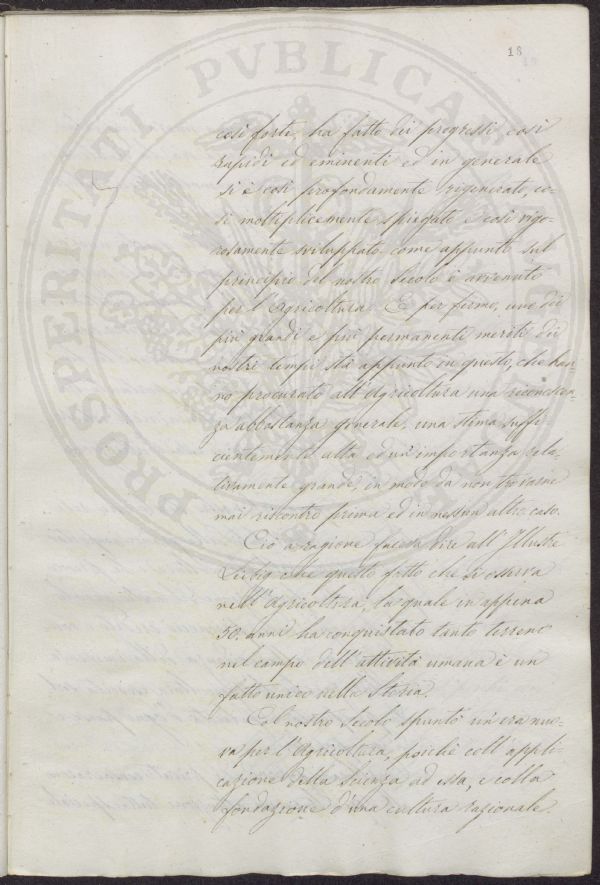 18
così forte, ha fatto dei progressi così
rapidi ed eminenti ed in generale
si è così profondamente rigenerato, co-
sì molteplicemente spiegato e così rigo-
rosamente sviluppato come appunto sul
principio del nostro Secolo è avvenuto
per l'Agricoltura. E per fermo, uno dei
più grandi e più permanenti meriti dei
nostri tempi sta appunto in questo, che han-
no procurato all'Agricoltura una riconoscen-
za abbastanza generale, una stima suffi
cientemente alta ed un'importanza rela-
tivamente grande, in modo da non trovarne
mai riscontro prima ed in nessun altro caso.
Ciò a ragione faceva dire all'Illustre
Liebig che questo fatto che si osserva
nell'Agricoltura, la quale in appena
50. anni ha conquistato tanto terreno
nel campo dell'attività umana è un
fatto unico nella Storia.
Col nostro Secolo spuntò un'era nuo-
va per l'Agricoltura, poichè coll'appli-
cazione della Scienza ad essa, e colla
fondazione d'una cultura razionale
PROSPERITATI PVBLICAE